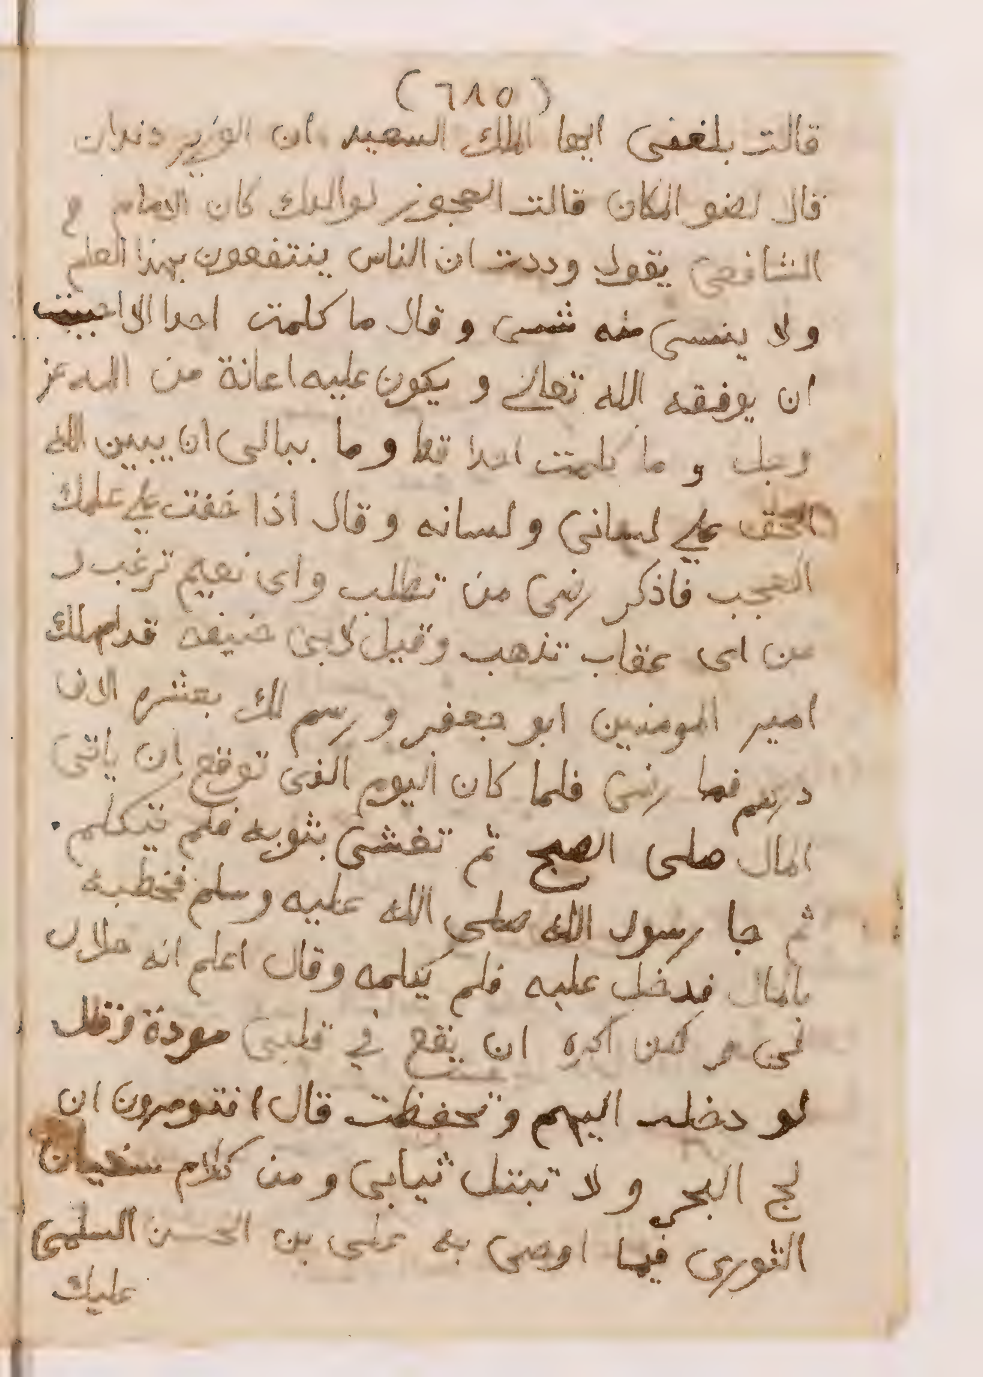 (٦٨٥)
قالت بلغنى ايها الملك السعيد ان الوزير دندان
قال لضو المكان قالت العجوز لوالدك كان الامام
الشافعى يقول وددت ان الناس ينتفعون بهذا العلم
ولا ينسى منه شى وقال ما كلمت احدا الا احببت
ان يوفقه الله تعالى و يكون عليه اعانة من الله عز
وجل و ما كلمت احدا قط وما ببالى ان يبين الله
الحق على لسانى ولسانه وقال اذا خفت على علمك
العجب فاذكر رضى من تطلب واى نعيم ترغب و
من اى عقاب تذهب وقيل لابى حنيفه
امير المومنين ابو جعفر و رسم لك بعشره الاف
درهم فما رضى فلما كان اليوم الذى توقع ان ياتى
المال صلى الصبح ثم تغشى بثوبه فلم يتكلم
ثم جا رسول الله صلى الله عليه وسلم
بالمال فدخل عليه فلم يكلمه وقال اعلم انه حلال
لى و لكن اكره ان يقع في قلبى مودة
لو دخلت اليهم وتحفظت قال ان
لج البحر و لا تبتل ثيابى ومن كلام سفيان
الثورى فيما اوصى به على بن الحسن السلمى
عليك